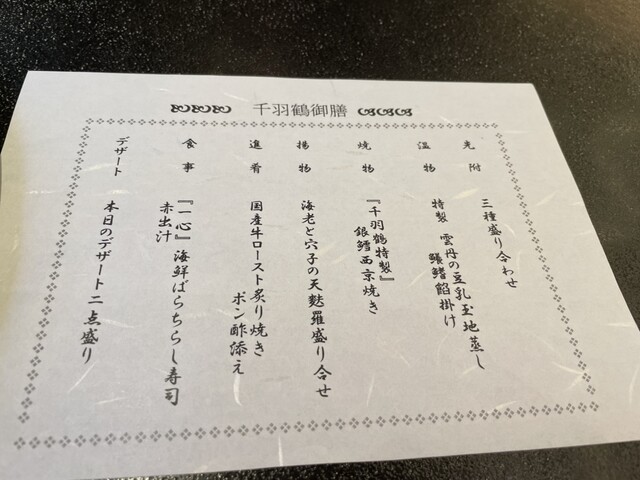 千羽鶴御膳
先附
三種盛り合わせ
温物
特製 雲丹の豆乳玉地蒸し
鱶鰭餡掛け
焼物
『千羽鶴特製』
銀鱈西京焼き
揚物
海老と穴子の天麩羅盛り合せ
進肴
国産牛ロースト炙り焼き
ポン酢添え
食事
『一心』海鮮ばらちらし寿司
赤出汁
デザート
本日のデザート二点盛り